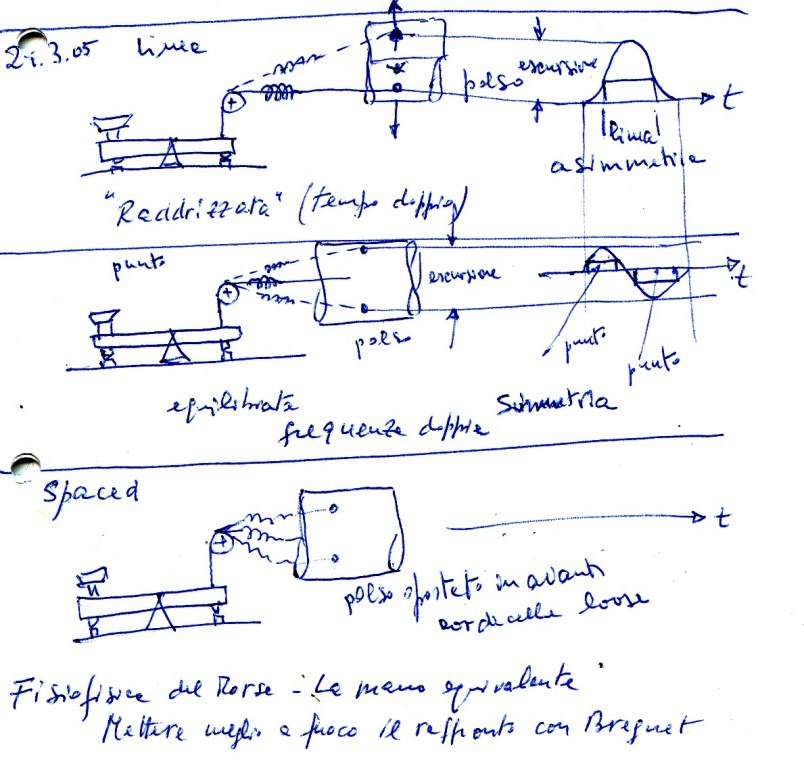 21.3.05 linea
escursione
polso
t
linea
asimmetria
"Raddrizzata" (tempo doppio)
punto
escursione
t
polso
punto
punto
equilibrata
Simmetria
frequenza doppia
Spaced
t
polso spostato in avanti
cordicelle loose
Fisiofisica del Morse - La mano equivalente
Mettere meglio a fuoco il raffronto con Breguet